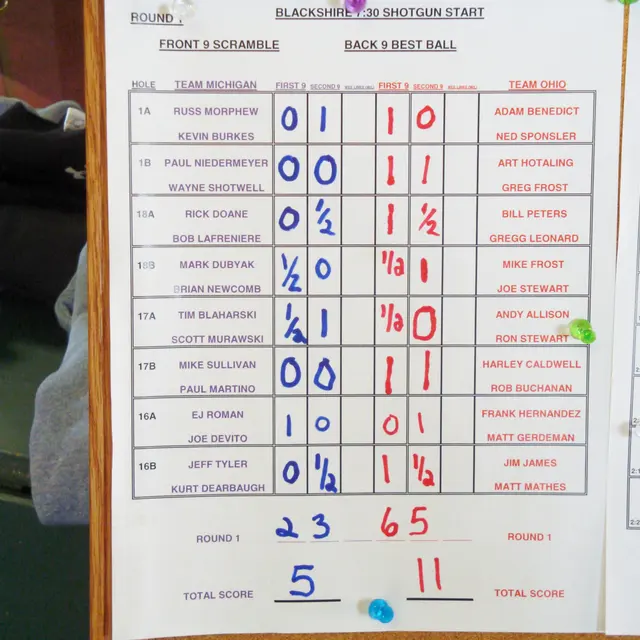 ROUND 1 BLACKSHIRE 7:30 SHOTGUN START
FRONT 9 SCRAMBLE BACK 9 BEST BALL
HOLE TEAM MICHIGAN FIRST 9 SECOND 9 FIRST 9 SECOND 9 TEAM OHIO
1A RUSS MORPHEW 0 1 1 0 ADAM BENEDICT
KEVIN BURKES NED SPONSLER
1B PAUL NIEDERMEYER 0 0 1 1 ART HOTALING
WAYNE SHOTWELL GREG FROST
18A RICK DOANE 0 1/2 1 1/2 BILL PETERS
BOB LAFRENIERE GREGG LEONARD
18B MARK DUBYAK 1/2 0 1/2 1 MIKE FROST
BRIAN NEWCOMB JOE STEWART
17A TIM BLAHARSKI 1/2 1 1/2 0 ANDY ALLISON
SCOTT MURAWSKI RON STEWART
17B MIKE SULLIVAN 0 0 1 1 HARLEY CALDWELL
PAUL MARTINO ROB BUCHANAN
16A EJ ROMAN 1 0 0 1 FRANK HERNANDEZ
JOE DEVITO MATT GERDEMAN
16B JEFF TYLER 0 1/2 1 1/2 JIM JAMES
KURT DEARBAUGH MATT MATHES
ROUND 1 2 3 6 5 ROUND 1
TOTAL SCORE 5 11 TOTAL SCORE